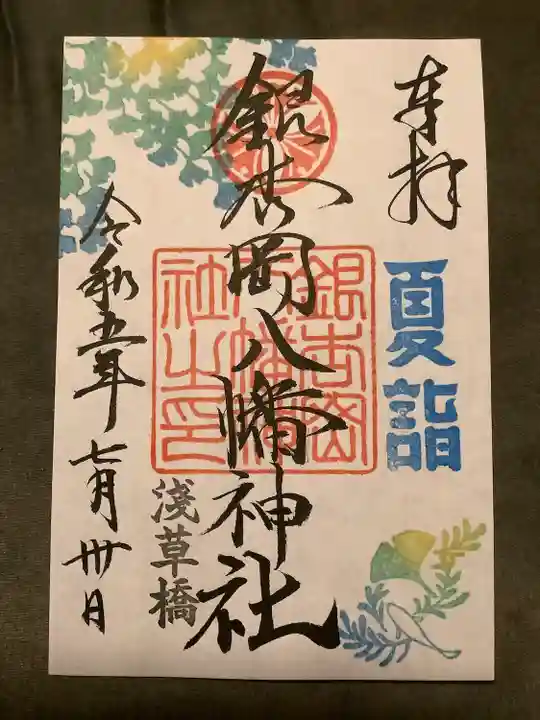 奉拝
夏詣
銀杏岡八幡神社
銀杏岡
八幡神
社之印
浅草橋
令和五年七月卅日